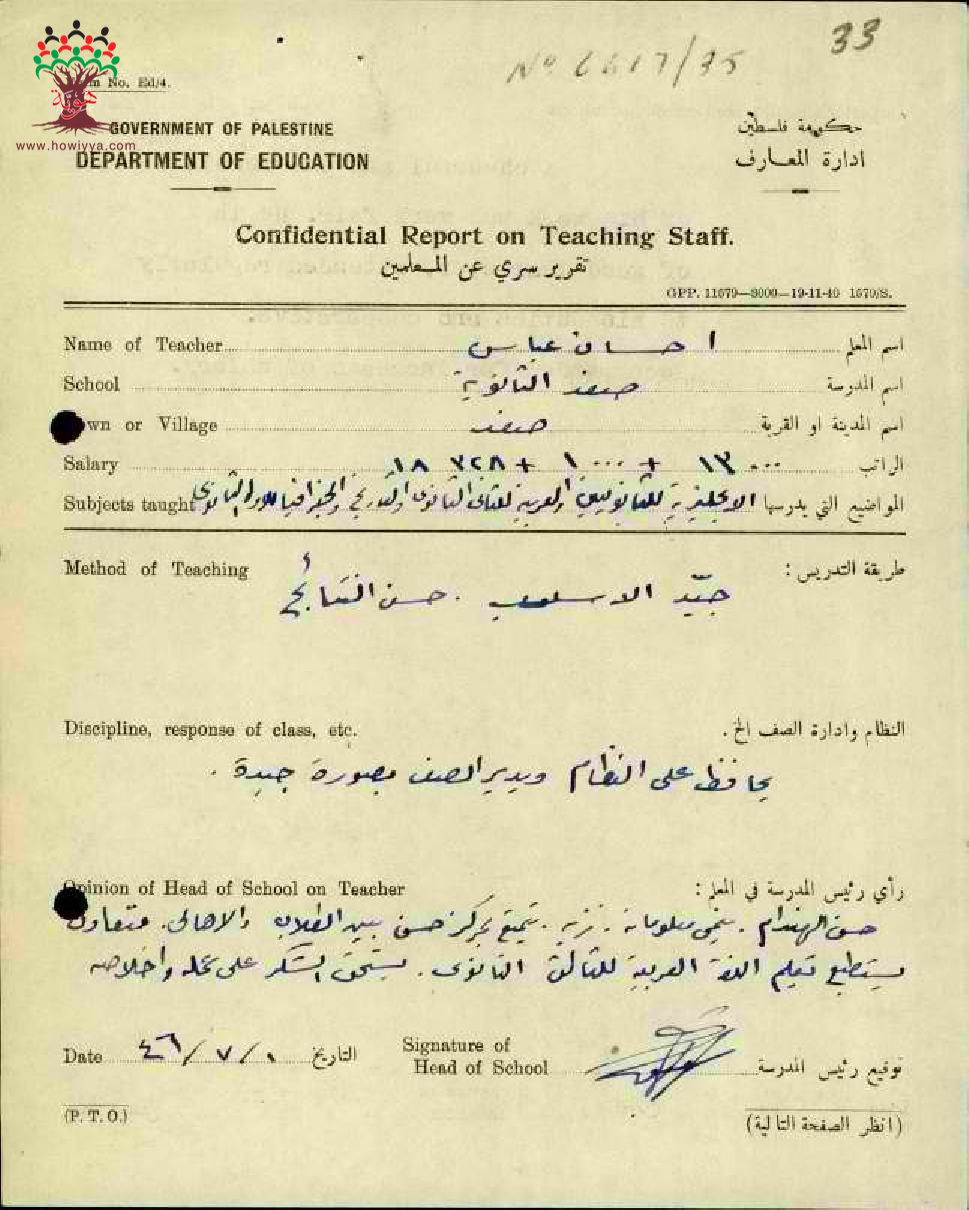 33
No 6617/35
No. Ed/4.
www.howiyya.com
GOVERNMENT OF PALESTINE
حكومة فلسطين
DEPARTMENT OF EDUCATION
ادارة المعارف
Confidential Report on Teaching Staff.
تقرير سري عن المعلمين
GPP. 11679—8000—19-11-40 1679/S.
Name of Teacher احسان عباس اسم المعلم
School صفد الثانوية اسم المدرسة
wn or Village صفد اسم المدينة او القرية
Salary ١٣ ٠٠٠ + ١ ٠٠٠ + ٣٢٨ ١٨ الراتب
Subjects taught الانجليزية للثانويين والعربية للثاني الثانوي والتاريخ والجغرافيا للاول الثانوي المواضيع التي يدرسها
Method of Teaching طريقة التدريس :
جيّد الاسلوب . حسن النتائج
Discipline, response of class, etc. النظام وادارة الصف الخ .
يحافظ على النظام ويدير الصف بصورة جيدة .
Opinion of Head of School on Teacher رأي رئيس المدرسة في المعلم :
حسن الهندام . ينمي معلوماته . نزيه . يتمتع بمركز حسن بين الطلاب والاهالي . متعاون
يستطيع تعليم اللغة العربية للثالث الثانوي . يستحق الشكر على عمله واخلاصه
Date ١ / ٧ / ٤٦ التاريخ
Signature of
Head of School توقيع رئيس المدرسة
(P. T. O.) (انظر الصفحة التالية)